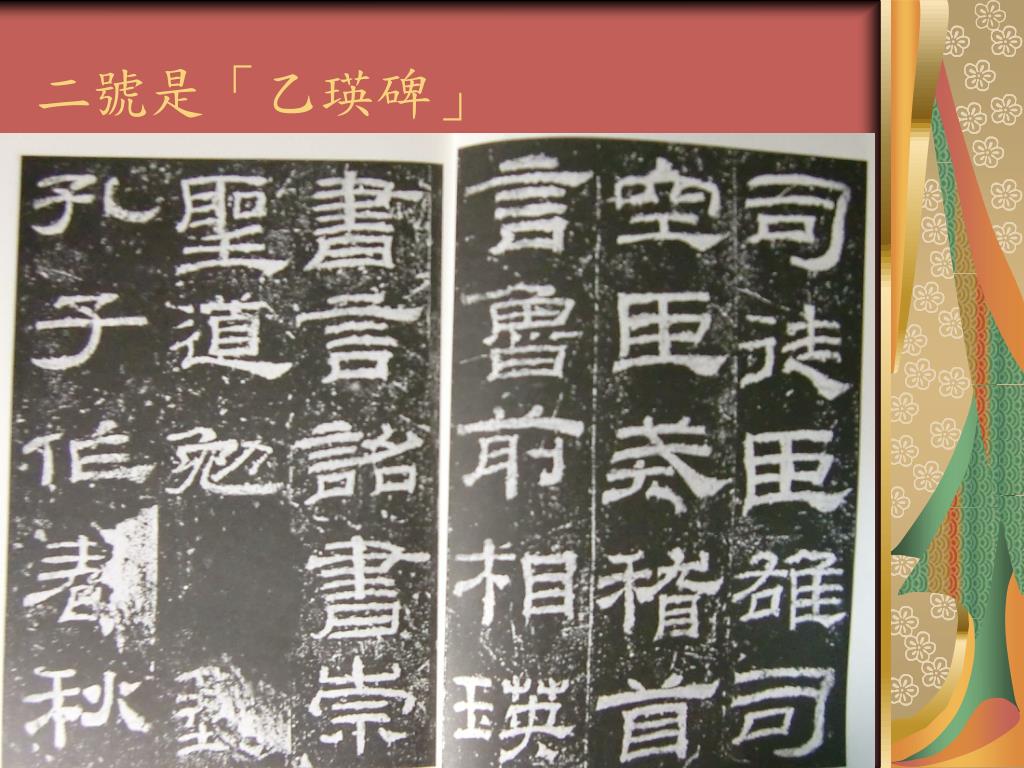 二號是「乙瑛碑」
司徒臣雄司
空臣戒稽首
言魯前相瑛
書言詔書崇
聖道勉藝
孔子作春秋